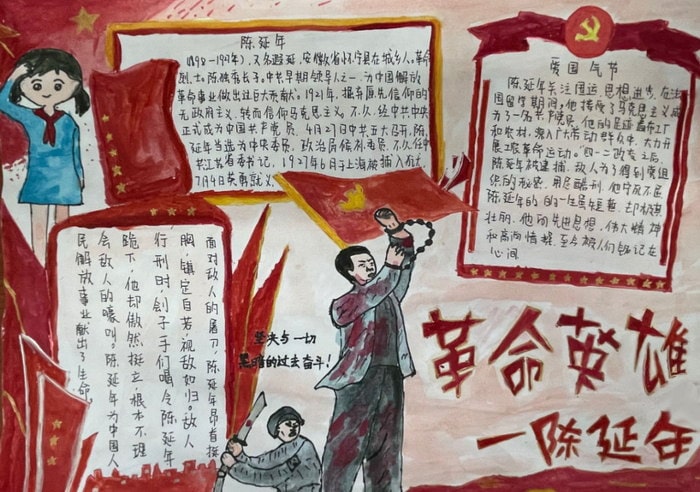 陈延年
(1898-1927年),又名遐延,安徽省怀宁县在城乡人。革命
烈士。陈独秀长子。中共早期领导人之一,为中国解放
革命事业做出过巨大贡献。1921年,摈弃原先信仰的
无政府主义,转而信仰马克思主义。不久,经中共中央
正式成为中国共产党员。4月27日中共五大召开,陈
延年当选为中央委员、政治局候补委员。不久任中
共江苏省委书记。1927年6月于上海被捕入狱,
7月4日英勇就义。
爱国气节
陈延年关注国运,思想进步,在法
国留学期间,他接受了马克思主义,成
为了一名共产党员。他的足迹遍布工厂
和农村,深入广大劳动群众中,大力开
展工农革命运动。"四一二政变"之后,
陈延年被逮捕,敌人为了得到党组
织的秘密,用尽酷刑,他宁死不屈。
陈延年的的一生虽短暂,却极其
壮丽。他的先进思想,伟大精神
和高尚情操,至今被人们铭记在
心间
面对敌人的屠刀,陈延年昂首挺
胸,镇定自若,视敌如归。敌人
行刑时,刽子手们喝令陈延年
跪下,他却傲然挺立,根本不理
会敌人的嚎叫。陈延年为中国人
民解放事业献出了生命。
坚决与一切
黑暗的过去奋斗!
革命英雄
—陈延年